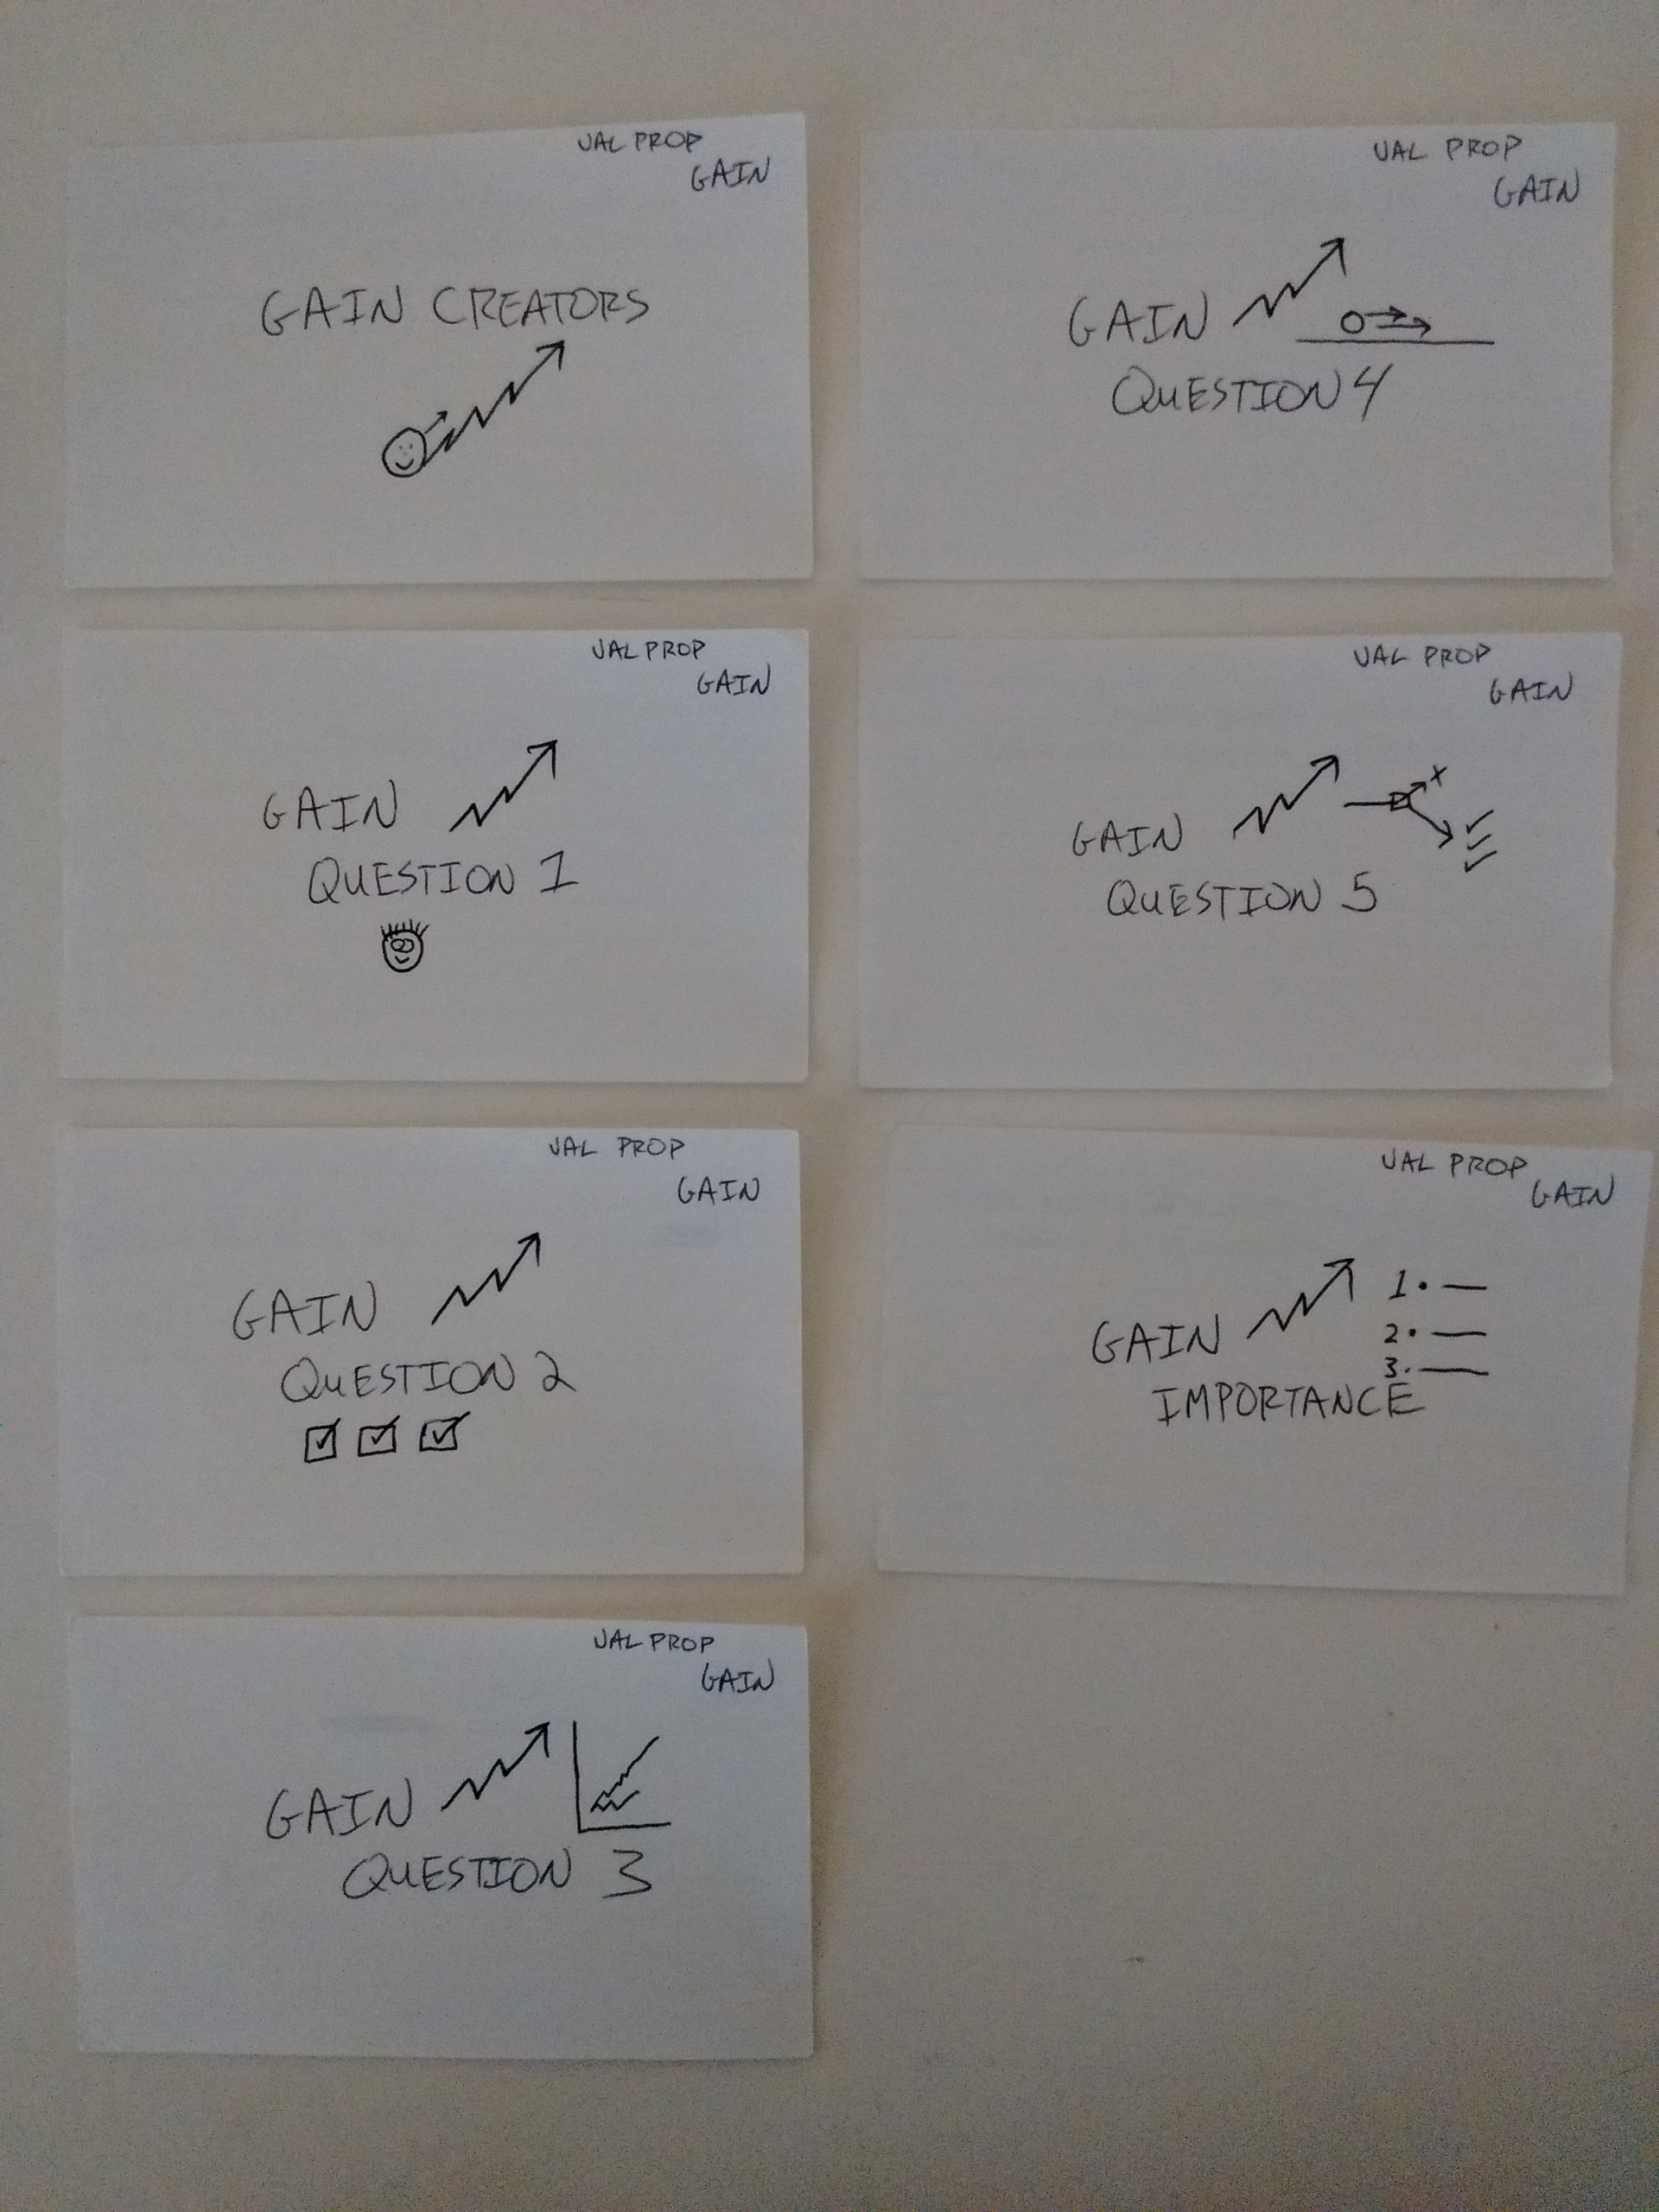 VAL PROP
GAIN
GAIN CREATORS
VAL PROP
GAIN
GAIN
QUESTION 1
VAL PROP
GAIN
GAIN
QUESTION 2
VAL PROP
GAIN
GAIN
QUESTION 3
VAL PROP
GAIN
GAIN
QUESTION 4
VAL PROP
GAIN
GAIN
QUESTION 5
VAL PROP
GAIN
1.
GAIN
2.
3.
IMPORTANCE